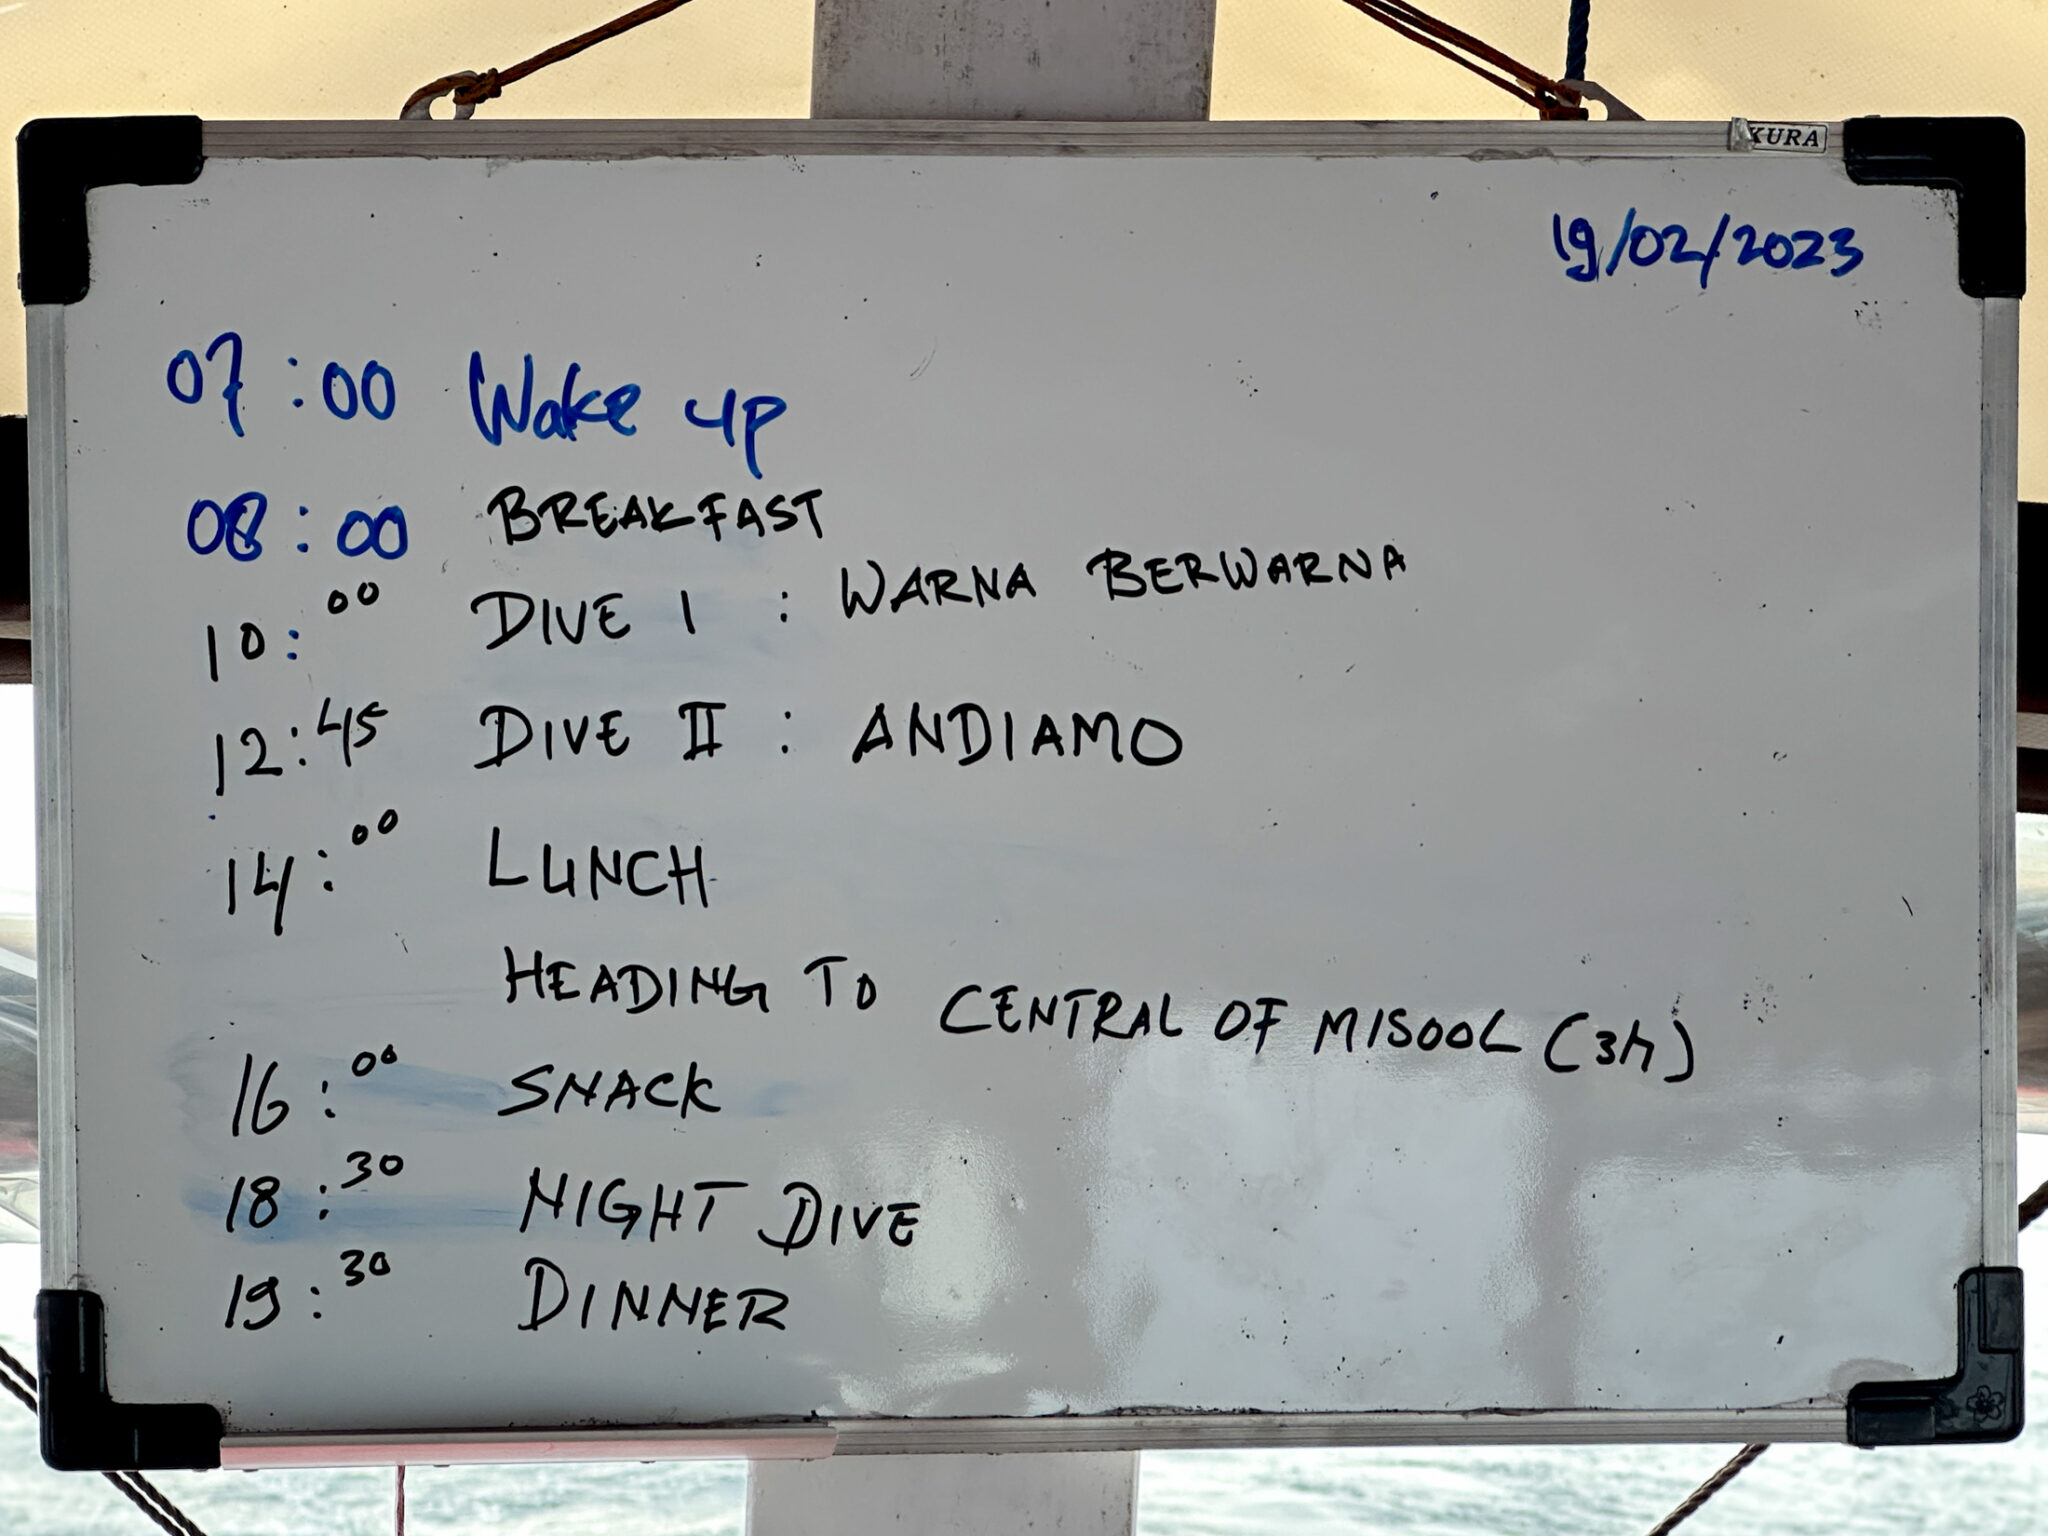 KURA
19/02/2023
07:00 Wake up
08:00 BREAKFAST
10:00 DIVE I : WARNA BERWARNA
12:45 DIVE II : ANDIAMO
14:00 LUNCH
HEADING TO CENTRAL OF MISOOL (3h)
16:00 SNACK
18:30 NIGHT DIVE
19:30 DINNER